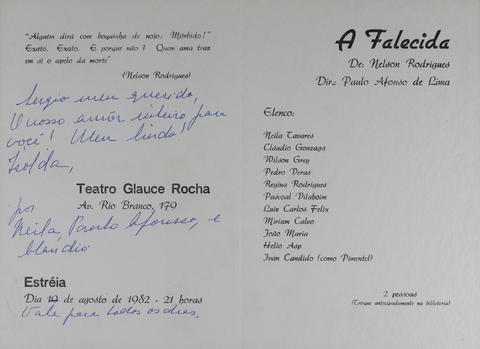 "Alguém dirá com boquinha de nojo: Mórbido!"
Exato. Exato. E porque não? Quem ama traz
em si o apelo da morte"
(Nelson Rodrigues)
Sergio meu querido,
O nosso amôr inteiro para
você! Meu lindo!
Isolda,
Teatro Glauce Rocha
Av. Rio Branco, 179
por
Neila Paulo Afonso, e
Claúdio
Estréia
Dia de agosto de 1982 - 21 horas
Vale para todos os dias.
A Falecida
De: Nelson Rodrigues
Dir.: Paulo Afonso de Lima
Elenco:
Neila Tavares
Cláudio Gonzaga
Wilson Grey
Pedro Veras
Regina Rodrigues
Pascoal Vilaboim
Luiz Carlos Felix
Miriam Calvo
João Maria
Helio Asp
Ivan Candido (como Pimentel)
2 pessoas
(Troque antecipadamente na bilheteria)